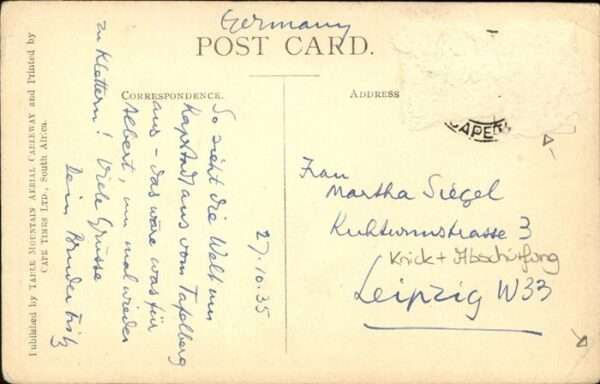 Germany
POST CARD.
CORRESPONDENCE.
ADDRESS
Published by TABLE MOUNTAIN AERIAL CABLEWAY and Printed by
CAPE TIMES LTD., South Africa.
27.10.35
So sieht die Welt um
Kapstadt aus vom Tafelberg
aus - das wäre was für
Albert, um mal wieder
zu Klettern! Viele Grüsse
Dein Bruder Fritz
CAPE
Frau
Martha Siegel
Kuhturmstrasse 3
Knick + Abschürfung
Leipzig W33